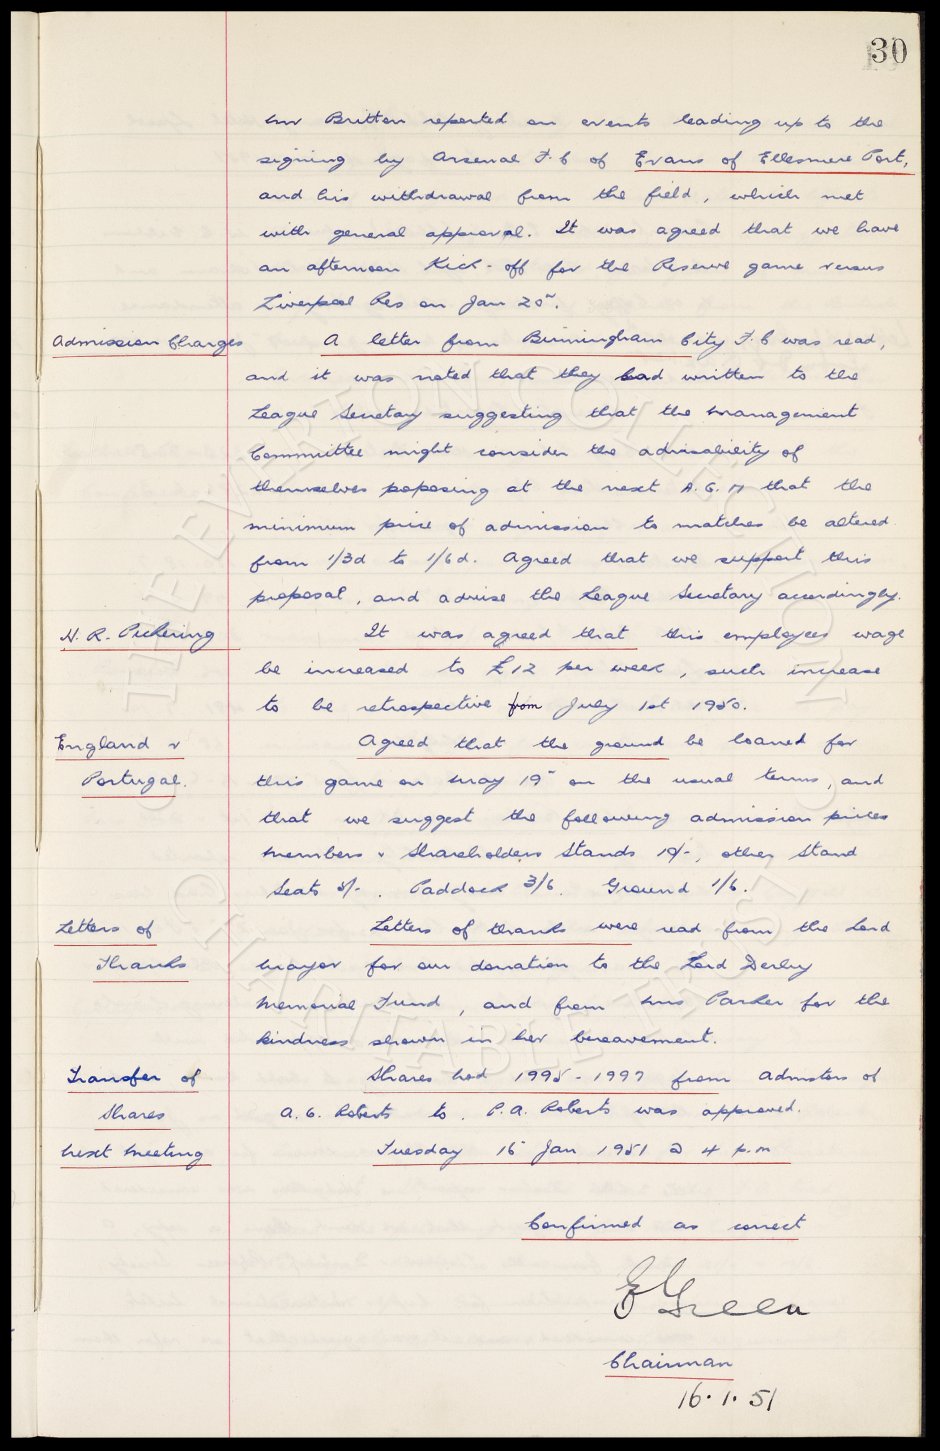 30
Mr Britten reported on events leading up to the
signing by Arsenal F.C of Evans of Ellesmere Port,
and his withdrawal from the field, which met
with general approval. It was agreed that we have
an afternoon Kick-off for the Reserve game versus
Liverpool Res on Jan 20".
Admission Charges A letter from Birmingham City F.C was read,
and it was noted that they had written to the
League Secretary suggesting that the Management
Committee might consider the advisability of
themselves proposing at the next A.G.M that the
minimum price of admission to matches be altered
from 1/3d to 1/6d. Agreed that we support this
proposal, and advise the League Secretary accordingly.
H. R. Pickering It was agreed that this employees wage
be increased to £12 per week, such increase
to be retrospective from July 1st 1950.
England v Agreed that the ground be loaned for
Portugal. this game on May 19" on the usual terms, and
that we suggest the following admission prices
Members & Shareholders Stands 10/-, other Stand
Seats 5/-. Paddock 3/6. Ground 1/6.
Letters of Letters of thanks were read from the Lord
Thanks Mayor for our donation to the Lord Derby
Memorial Fund, and from Mrs Parker for the
kindness shown in her bereavement.
Transfer of Shares nod 1995-1997 from Admstors of
Shares A. G. Roberts to. P. A. Roberts was approved.
Next Meeting Tuesday 16" Jan 1951 @ 4 p.m
Confirmed as correct
E Green
Chairman
16.1.51
THE EVERTON COLLECTION
CHARITABLE TRUST